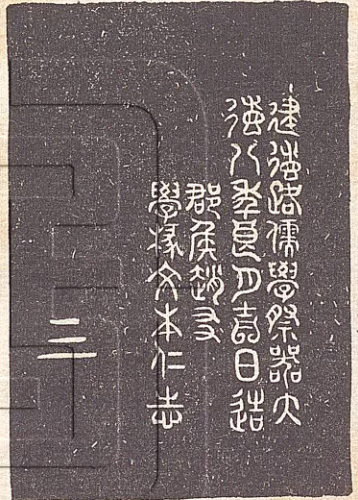 建德路儒學祭器大
德八年良月吉日造
郡侯趙
學掾文本仁志
三